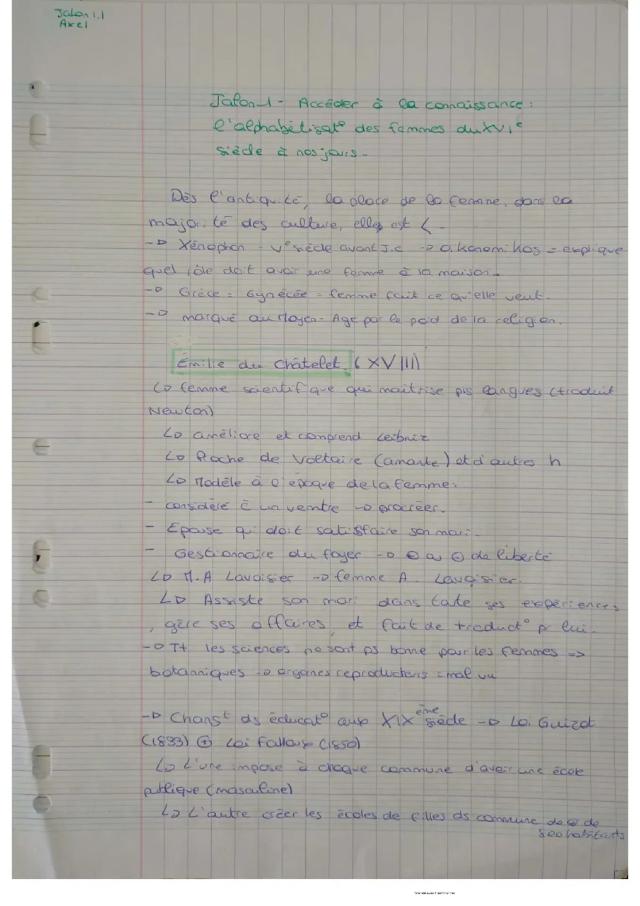 Jalon 1.1
Axel
Jalon 1 - Accéder à la connaissance :
l'alphabétisat° des femmes du XVIe
siècle à nos jours -
Dès l'antiquité, la place de la femme, dans la
majorité des culture, elles est < -
-> Xénophon - Ve siècle avant J.C -> o.konomikos = explique
quel rôle doit avoir une femme à la maison -
-> Grèce = Gynécée = femme fait ce qu'elle veut.
-> marqué au Moyen-Age par le poid de la religion.
Émilie du Châtelet (XVIII)
↳ femme scientifique qui maitrise pls langues (traduit
Newton)
↳ améliore et comprend Leibniz
↳ Proche de Voltaire (amante) et d'autres h
↳ Modèle à l'époque de la femme :
- considéré à un ventre -> procréer.
- Epouse qui doit satisfaire son mari.
- Gestionnaire du foyer -> ⊕ ou ⊖ de liberté
↳ M.A Lavoisier -> femme A. Lavoisier
↳ Assiste son mari dans toute ses expériences
, gère ses affaires, et fait de traduct° pr lui -
-> Tt les sciences ne sont ps bonne pour les femmes =>
botanniques -> organes reproducteurs = mal vu
-> Changt ds éducat° aux XIXème siècle -> Loi Guizot
(1833) ⊕ Loi Falloux (1850)
↳ L'une impose à chaque commune d'avoir une école
publique (masculine)
↳ L'autre créer les écoles de filles ds commune de ⊕ de
800 habitants